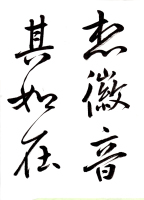 徽音
其如在